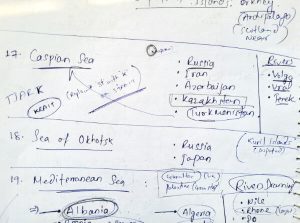 islands:
Orkney
(Archipelago)
Scotland
near
17. Caspian Sea
• Russia
• Iran
• Azarbaijan
• Kazakhstan
• Turkmenistan
Rivers
• Volga
• Ural
• Terek
TIARK
18. Sea of Okhotsk
• Russia
• Japan
Kuril Islands
19. Mediterranean Sea :
River Draining
• Nile
• Rhone
⇒ Albania
• Algeria